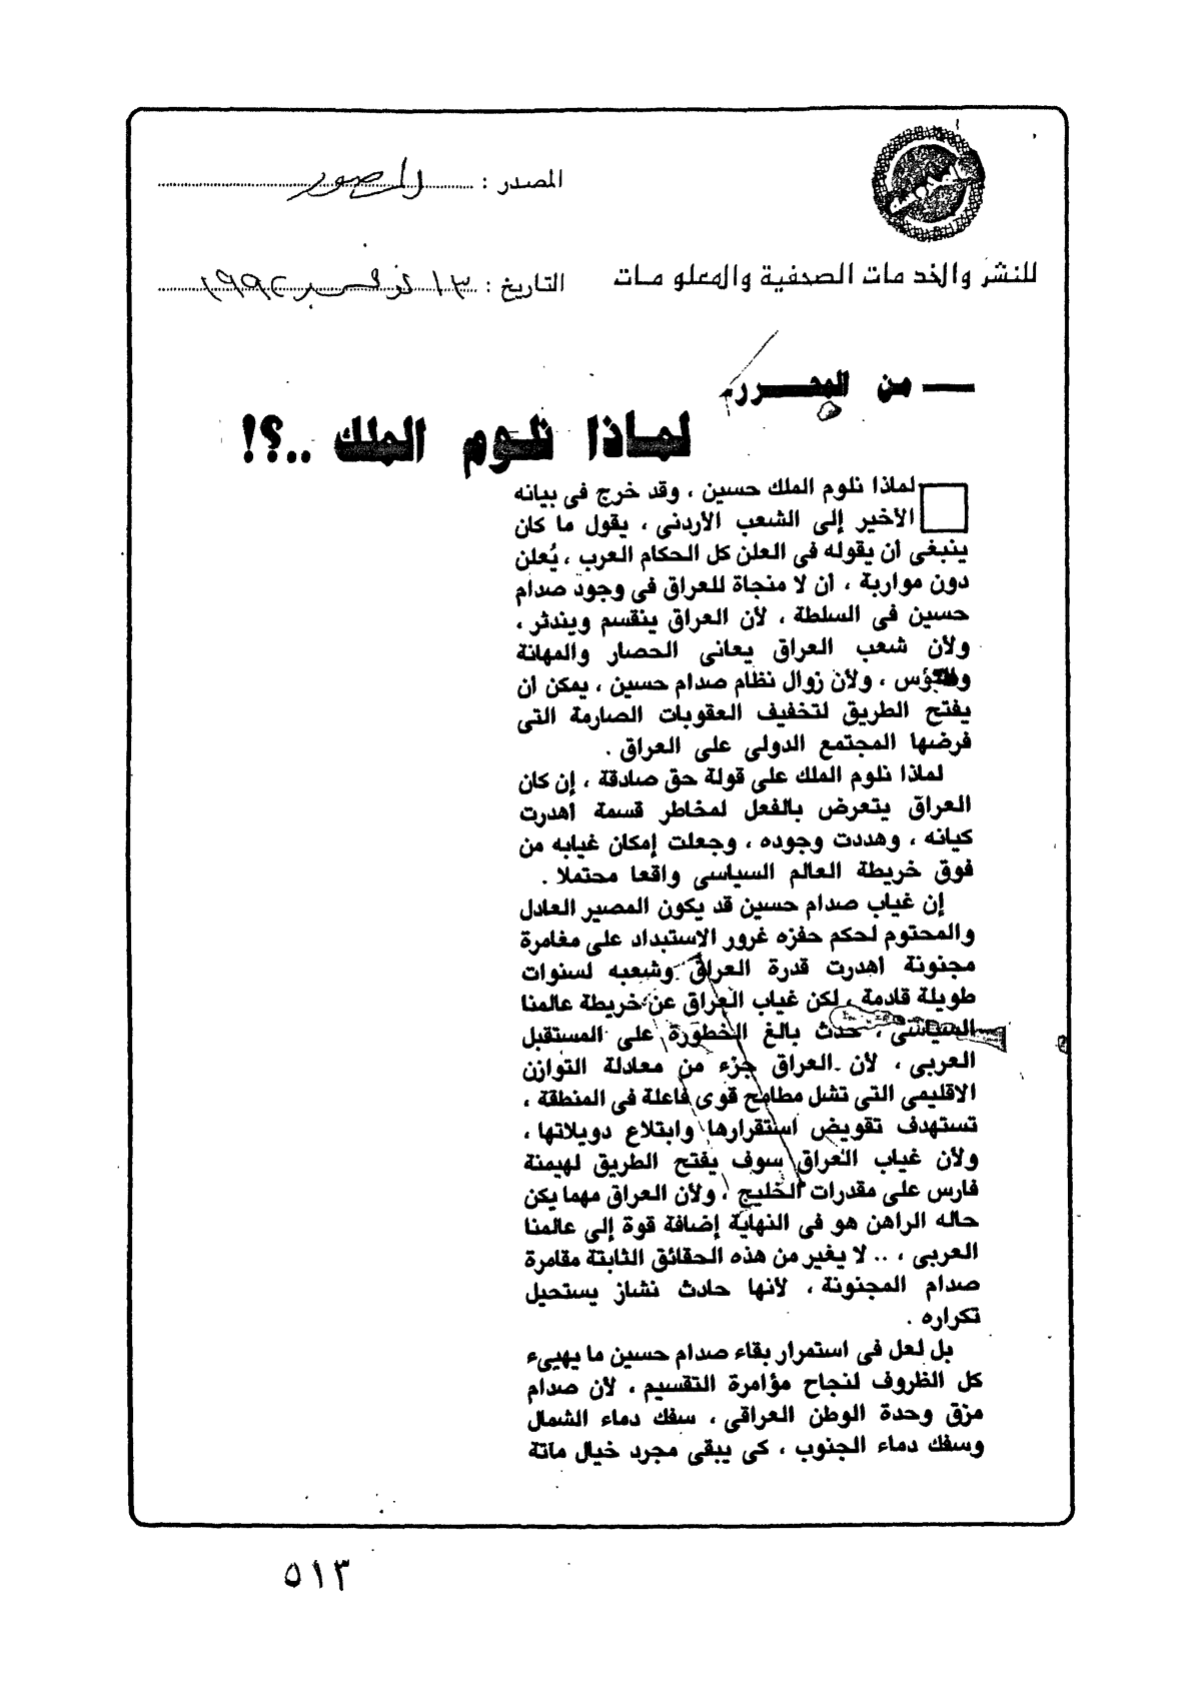 المصدر : المصور
للنشر والخدمات الصحفية والمعلومات
التاريخ : ١٣ نوفمبر ١٩٩٢
من المحرر
لماذا نلوم الملك ..؟!
لماذا نلوم الملك حسين ، وقد خرج فى بيانه
الأخير إلى الشعب الأردنى ، يقول ما كان
ينبغى أن يقوله فى العلن كل الحكام العرب ، يُعلن
دون مواربة ، أن لا منجاة للعراق فى وجود صدام
حسين فى السلطة ، لأن العراق ينقسم ويندثر ،
ولأن شعب العراق يعانى الحصار والمهانة
والبؤس ، ولأن زوال نظام صدام حسين ، يمكن أن
يفتح الطريق لتخفيف العقوبات الصارمة التى
فرضها المجتمع الدولى على العراق .
لماذا نلوم الملك على قولة حق صادقة ، إن كان
العراق يتعرض بالفعل لمخاطر قسمة أهدرت
كيانه ، وهددت وجوده ، وجعلت إمكان غيابه من
فوق خريطة العالم السياسى واقعا محتملا .
إن غياب صدام حسين قد يكون المصير العادل
والمحتوم لحكم حفزه غرور الاستبداد على مغامرة
مجنونة أهدرت قدرة العراق وشعبه لسنوات
طويلة قادمة ، لكن غياب العراق عن خريطة عالمنا
السياسى ، حدث بالغ الخطورة على المستقبل
العربى ، لأن العراق جزء من معادلة التوازن
الاقليمى التى تشل مطامح قوى فاعلة فى المنطقة ،
تستهدف تقويض استقرارها وابتلاع دويلاتها ،
ولأن غياب العراق سوف يفتح الطريق لهيمنة
فارس على مقدرات الخليج ، ولأن العراق مهما يكن
حاله الراهن هو فى النهاية إضافة قوة إلى عالمنا
العربى ، .. لا يغير من هذه الحقائق الثابتة مقامرة
صدام المجنونة ، لأنها حادث نشاز يستحيل
تكراره .
بل لعل فى استمرار بقاء صدام حسين ما يهيىء
كل الظروف لنجاح مؤامرة التقسيم ، لأن صدام
مزق وحدة الوطن العراقى ، سفك دماء الشمال
وسفك دماء الجنوب ، كى يبقى مجرد خيال ماتة
٥١٣